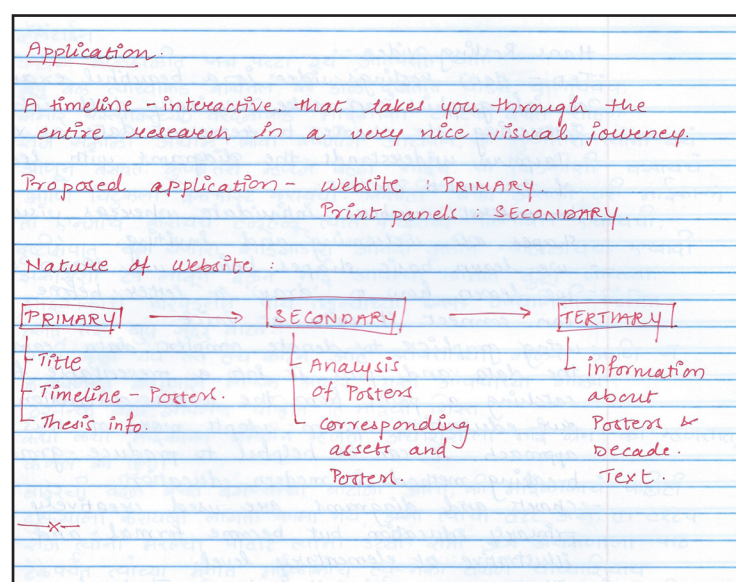 Application.
A timeline - interactive. that takes you through the
entire research in a very nice visual journey.
Proposed application - website : PRIMARY.
Print panels : SECONDARY.
Nature of website :
PRIMARY → SECONDARY → TERTIARY
Title
Timeline - Posters.
Thesis info.
Analysis
of Posters
corresponding
assets and
Posters.
information
about
Posters &
Decade.
Text.
—x—